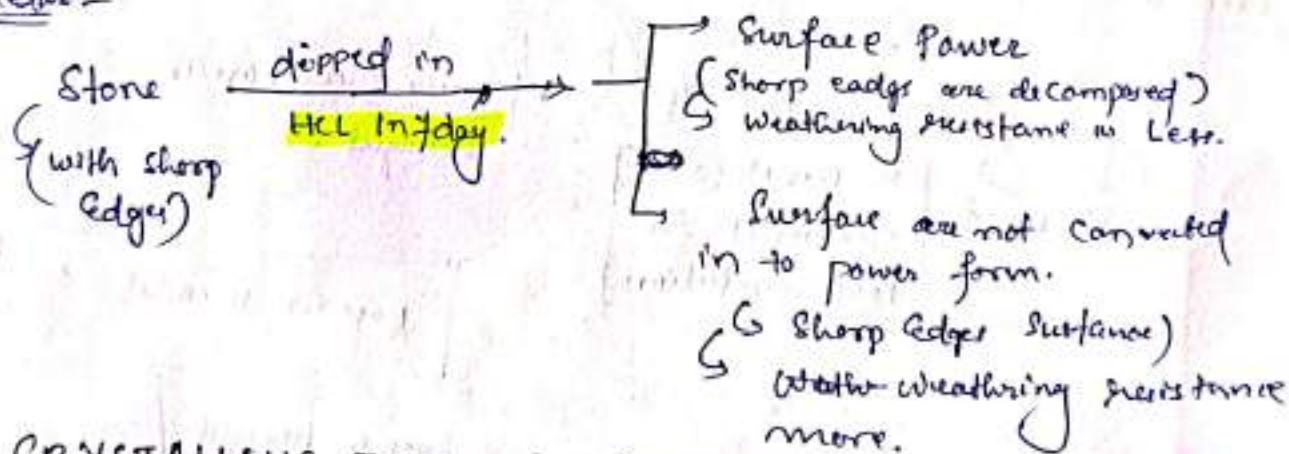 Stone
(with shorp
Edges)
dipped in
HCL In 7 day.
Surface Power
(Shorp eadgs are decomposed)
Weathering resistane is Less.
Surface are not Convereted
in to power form.
(Shorp Edges Surfance)
weathring resistance
more.